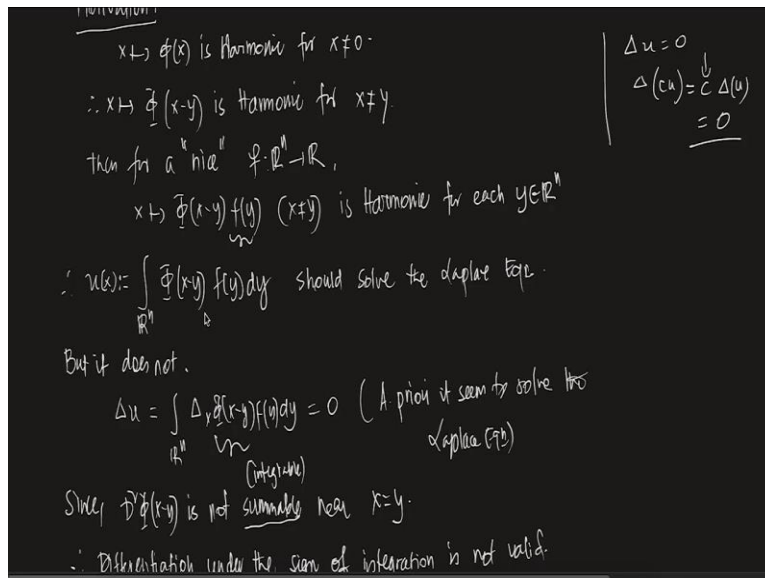 Motivation:
x ↦ φ(x) is Harmonic for x≠0.
∴ x ↦ Φ(x-y) is Harmonic for x≠y.
then for a "nice" f: ℝⁿ→ℝ,
x ↦ Φ(x-y) f(y) (x≠y) is Harmonic for each y∈ℝⁿ
∴ u(x):= ∫_{ℝⁿ} Φ(x-y) f(y) dy should solve the Laplace Eqn.
But it does not.
Δu = ∫_{ℝⁿ} Δₓ Φ(x-y) f(y) dy = 0 (A priori it seem to solve the
Laplace Eqn)
(integrable)
Since, D²Φ(x-y) is not summable near x=y.
∴ Differentiation under the sign of integration is not valid.
Δu=0
Δ(cu) = c Δ(u)
= 0